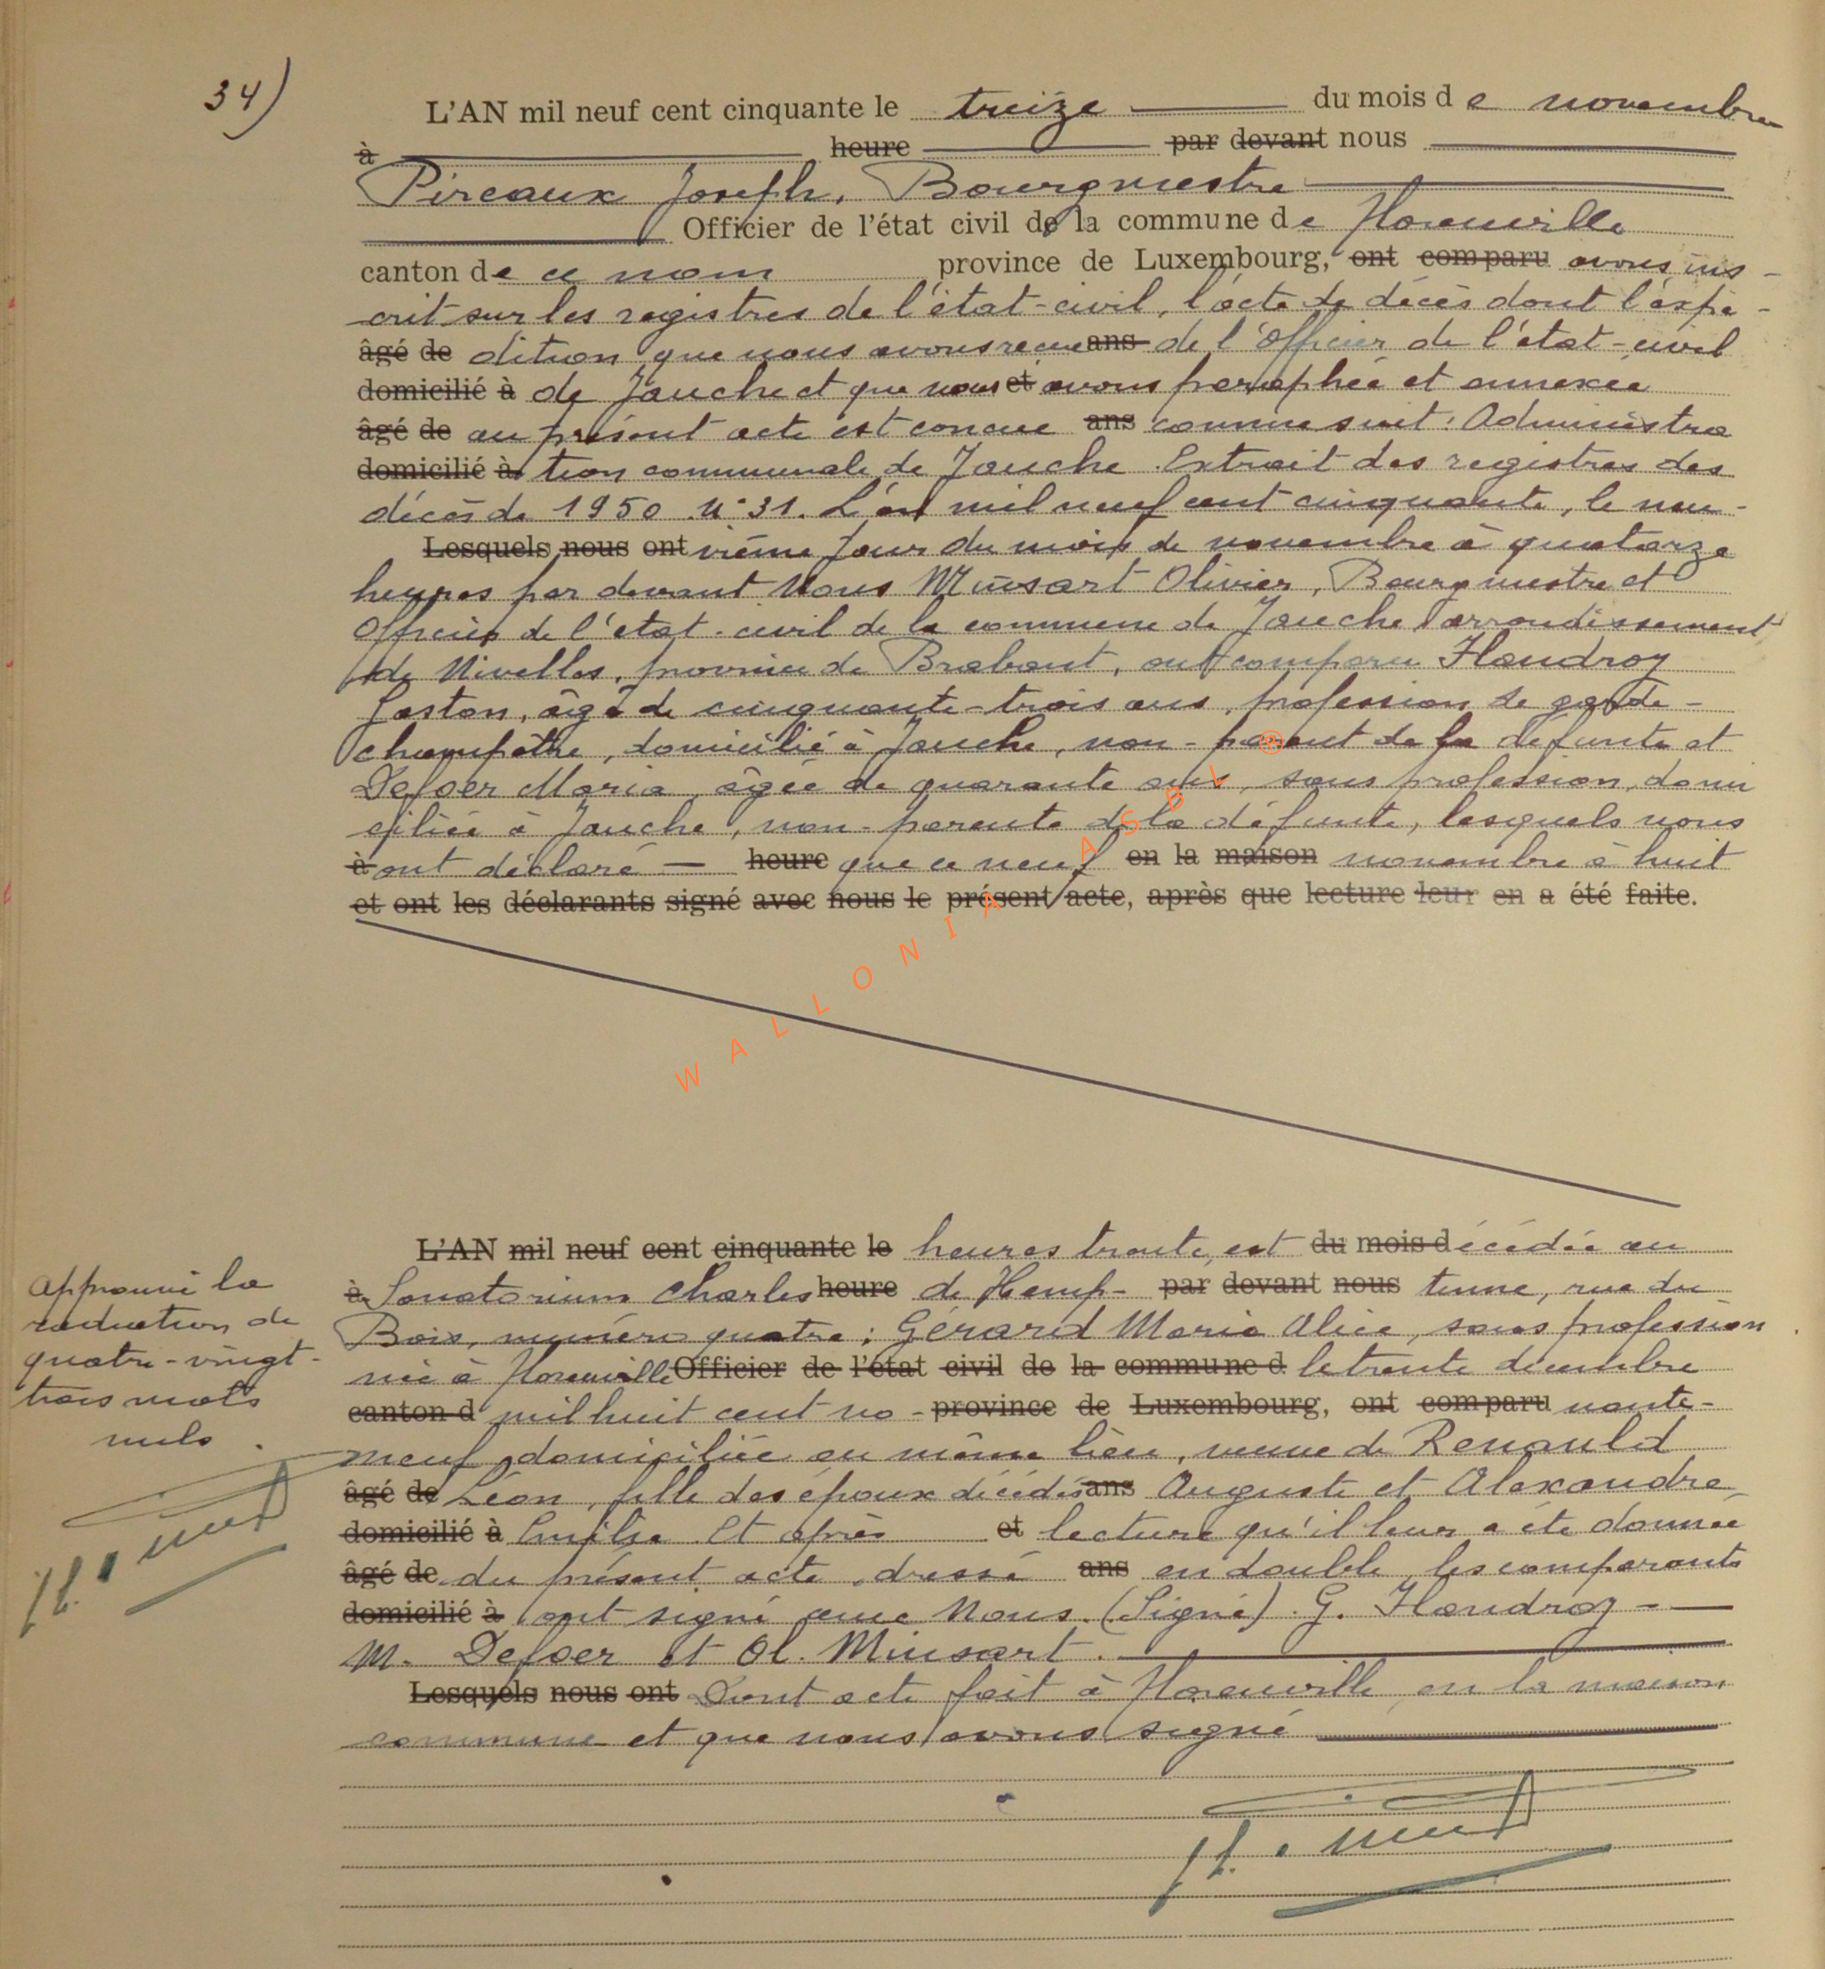 34)
L'AN mil neuf cent cinquante le treize du mois d e novembre
à heure par devant nous
Pireaux Joseph, Bourgmestre
Officier de l'état civil de la commune de Florenville
canton de ce nom province de Luxembourg, ont comparu avons ins-
crit sur les registres de l'état-civil, l'acte de décès dont l'expé-
âgé de dition que nous avons reçue ans de l'Officier de l'état-civil
domicilié à de Jauche et que nous et avons paraphée et annexée
âgé de au présent acte est concue ans comme suit: Administra
domicilié à tion communale de Jauche. Extrait des registres des
décès de 1950. N°31. L'an mil neuf cent cinquante, le neu-
Lesquels nous ont vième jour du mois de novembre à quatorze
heures par devant Nous Minsart Olivier, Bourgmestre et
Officier de l'etat-civil de la commune de Jauche arrondissement
de Nivelles, province de Brabant, ont comparu Flandroy
Gaston, âgé de cinquante-trois ans, profession de garde-
champêtre, domicilié à Jauche, non-parent de la défunte et
Defoer Maria, âgée de quarante ans, sans profession, domi
ciliée à Jauche, non-parente de la défunte, lesquels nous
à ont déclaré heure que ce neuf en la maison novembre à huit
et ont les déclarants signé avec nous le présent acte, après que lecture leur en a été faite.
WALLONIA ASBL ®
L'AN mil neuf cent cinquante le heures trente, est du mois d écédée au
à Sanatorium Charles heure de Hemp- par devant nous tinne, rue du
Bois, numéro quatre: Gérard Maria Alice, sans profession
née à Florenville Officier de l'état civil de la commune d le trente décembre
canton d mil huit cent no- province de Luxembourg, ont comparu nante-
neuf, domiciliée au même lieu, veuve de Renauld
âgé de Léon, fille des époux décédés ans Auguste et Alexandre
domicilié à Emélie. Et après et lecture qu'il leur a été donnée
âgé de du présent acte, dressé ans en double, les comparants
domicilié à ont signé avec Nous. (Signé) G. Flandroy -
M. Defoer et Ol. Minsart.
Lesquels nous ont Dont acte fait à Florenville, en la maison
commune et que nous avons signé
Approuvé la
radiation de
quatre-vingt-
trois mots
nuls.